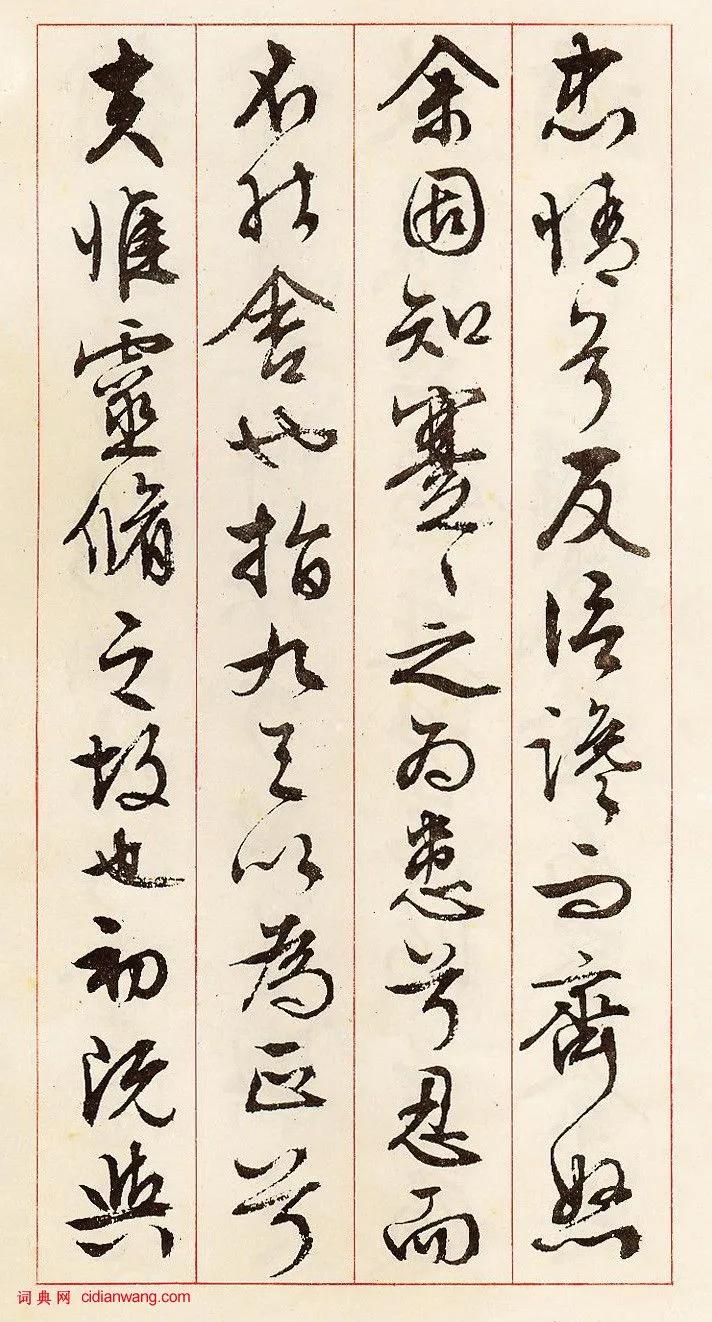 忠情兮反信谗而齌怒
余固知謇〻之为患兮忍而
不能舍也指九天以為正兮
夫惟靈脩之故也初既與
词典网 cidianwang.com